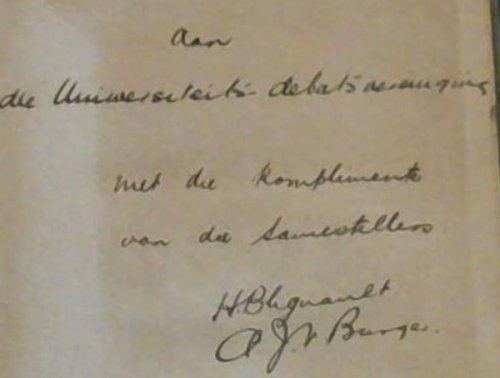 Aan
die Universiteits-debatsvereniging
met die komplimente
van die samestellers
H. Bhguault
A J V Burger.